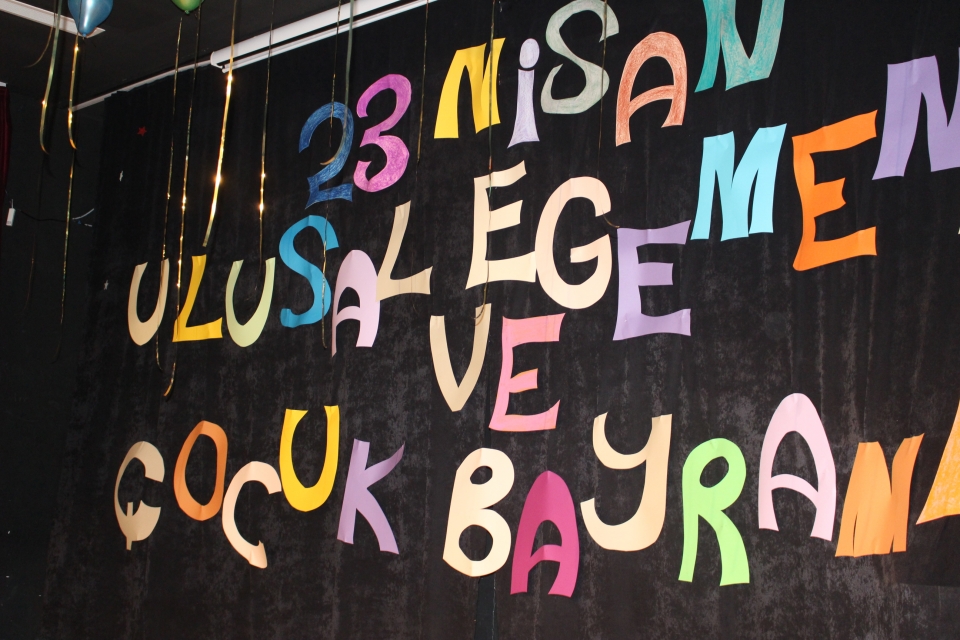 23 NiSAN
ULUSAL EGEMEN
VE
ÇOCUK BAYRAM